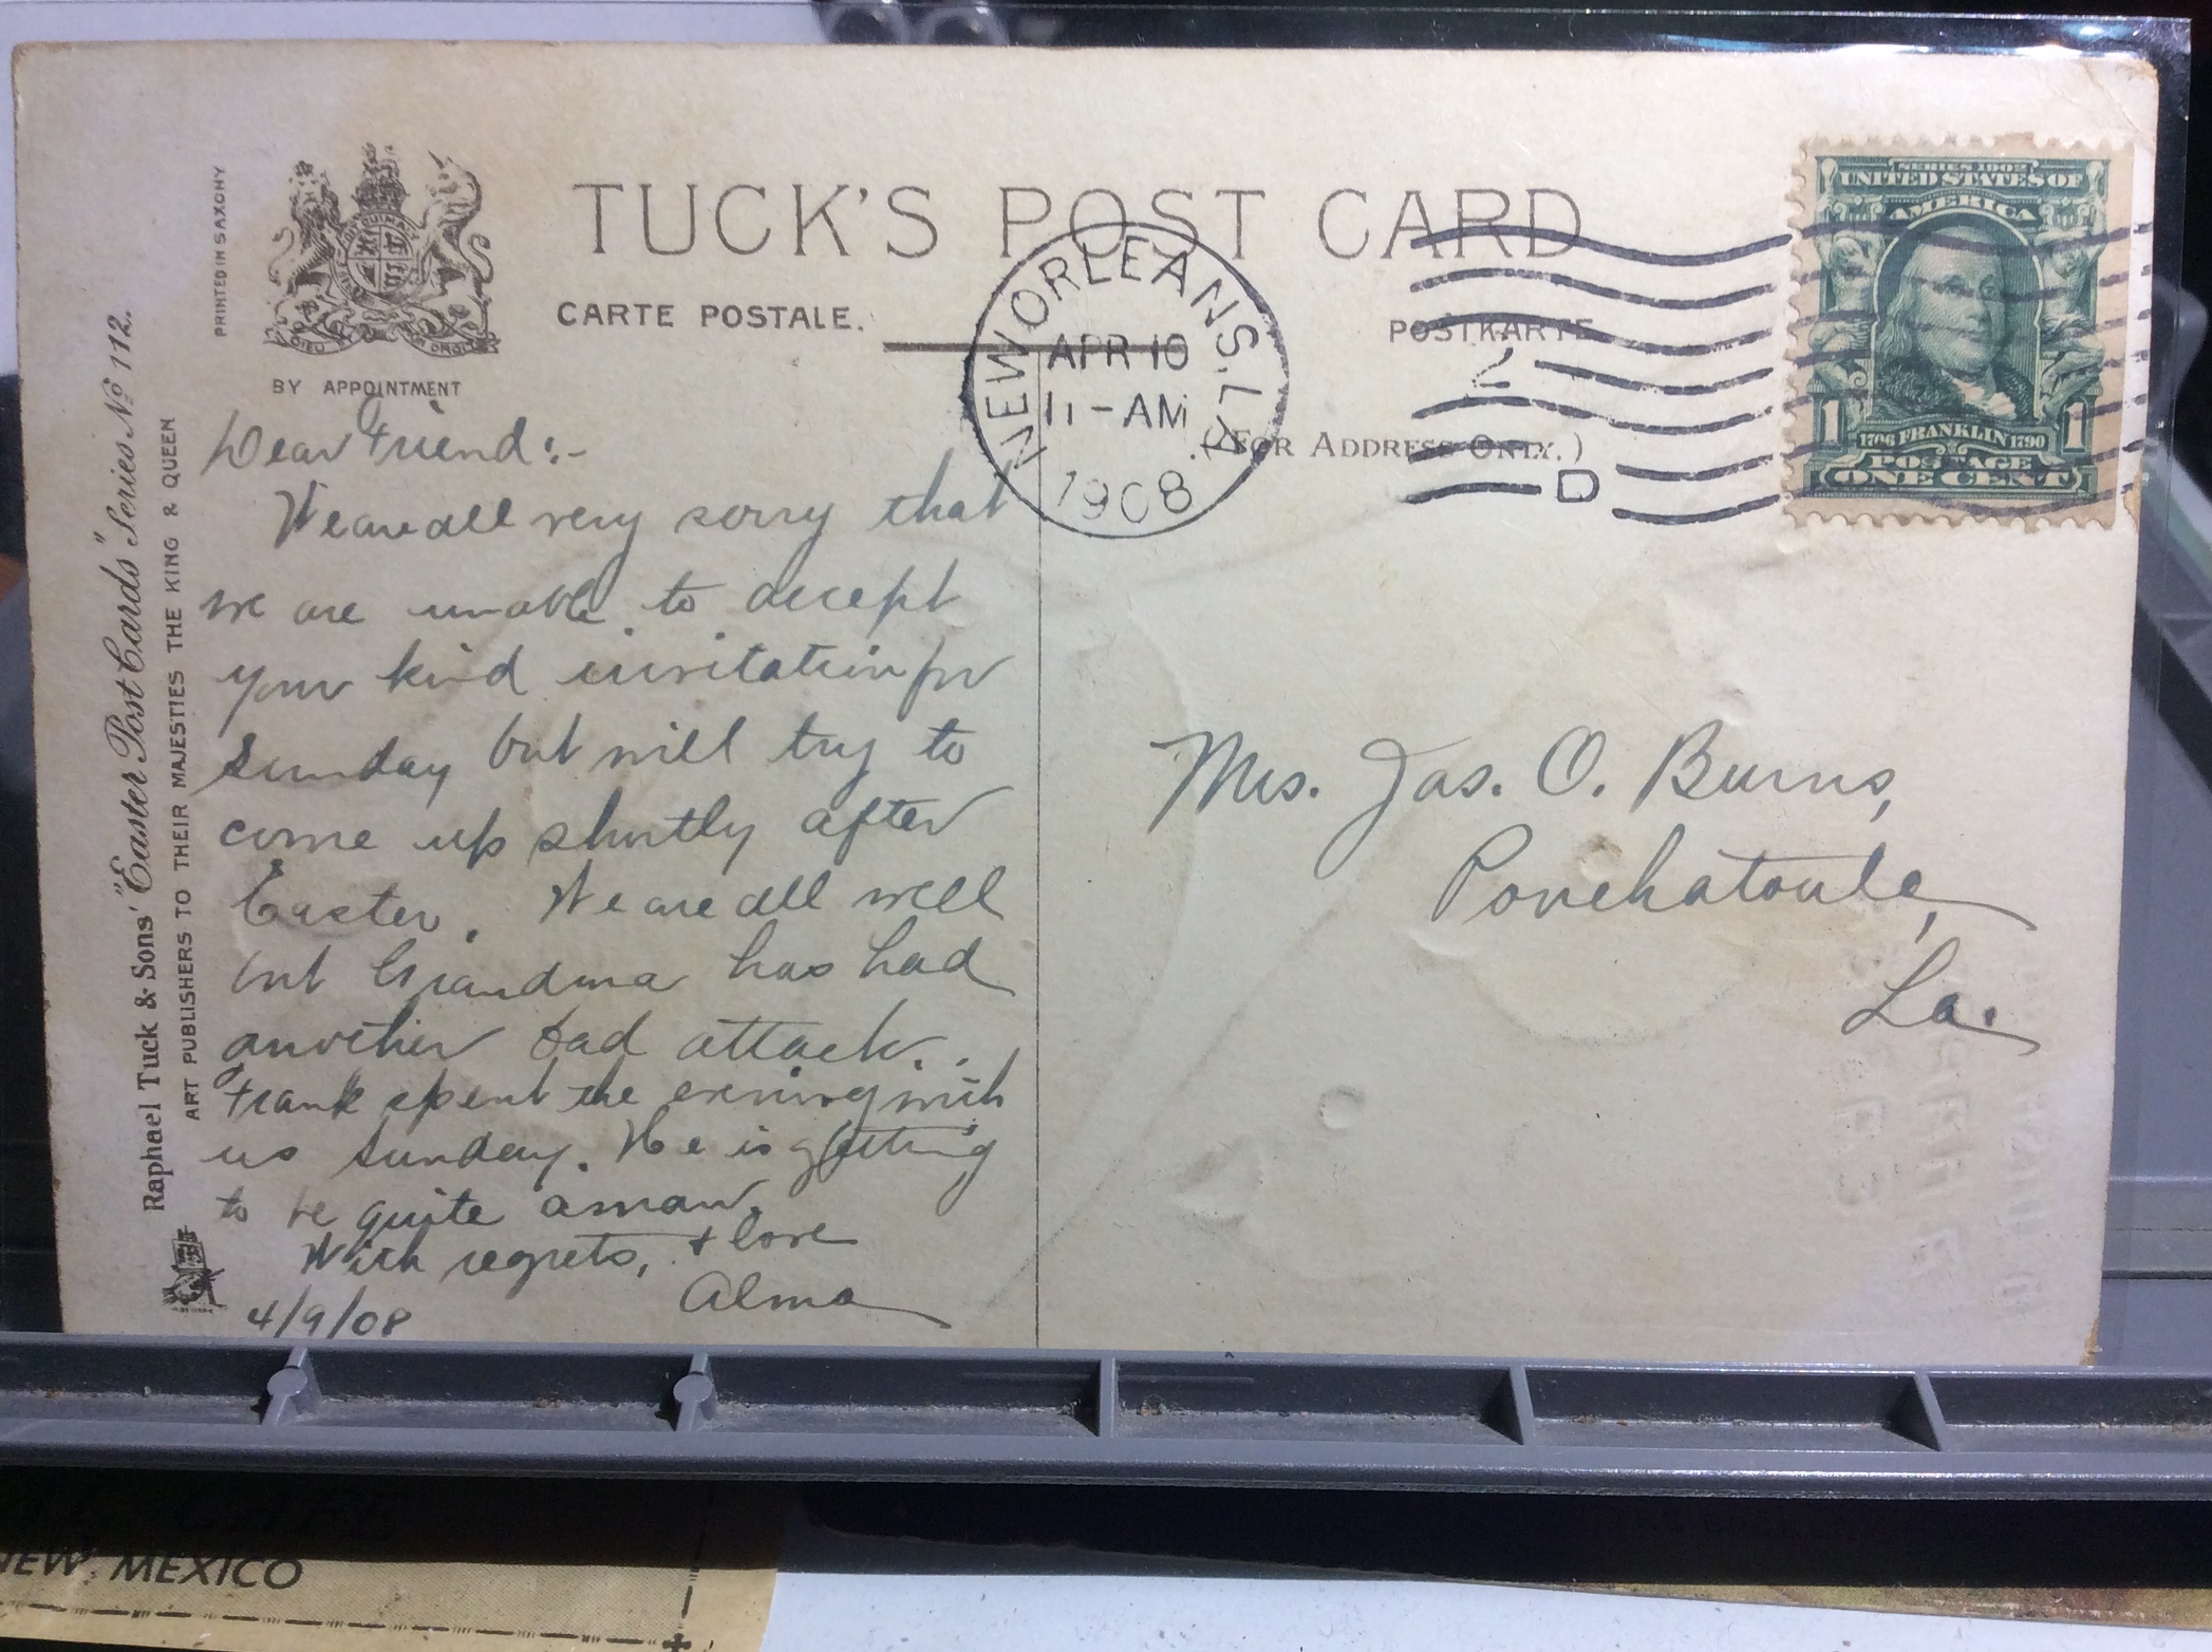 TUCK'S POST CARD
CARTE POSTALE.
POSTKARTE
(FOR ADDRESS ONLY.)
PRINTED IN SAXONY
DIEU ET MON DROIT
BY APPOINTMENT
Raphael Tuck & Sons' "Easter Post Cards" Series No 112.
ART PUBLISHERS TO THEIR MAJESTIES THE KING & QUEEN
NEW ORLEANS, LA.
APR 10
11-AM
1908
2
D
SERIES 1902
UNITED STATES OF
AMERICA
1 1
1706 FRANKLIN 1790
POSTAGE
ONE CENT
Dear Friend:-
We are all very sorry that
we are unable to accept
your kind invitation for
Sunday but will try to
come up shortly after
Easter. We are all well
but Grandma has had
another bad attack.
Frank spent the evening with
us Sunday. He is getting
to be quite a man.
With regrets, + love
Alma
4/9/08
Mrs. Jas. O. Burns,
Ponchatoula,
La.
NEW MEXICO